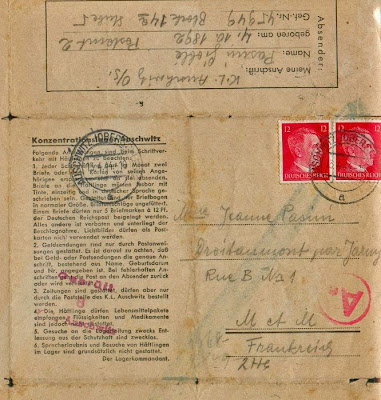 Absender:
Meine Anschrift:
Name:
geboren am: 4. 10. 1892
Gef.-Nr. 45949
Block 14a
Konzentrationslager Auschwitz
Folgende Anordnungen sind beim Schriftver-
kehr mit Häftlingen zu beachten:
1. Jeder Schutzhäftling darf im Monat zwei
Briefe oder Karten von seinen Angehö-
rigen empfangen und an sie absenden.
Briefe an die Häftlinge müssen lesbar mit
Tinte, einseitig und in deutscher Sprache ge-
schrieben sein. Gestattet sind nur Briefbogen
in normaler Größe, Briefumschläge ungefüttert.
Einem Briefe dürfen nur 5 Briefmarken à 12
der Deutschen Reichspost beigelegt werden.
Alles andere ist verboten und unterliegt der
Beschlagnahme. Lichtbilder dürfen als Post-
karten nicht verwendet werden.
2. Geldsendungen sind nur durch Postanwei-
sungen gestattet. Es ist darauf zu achten, daß
bei Geld- oder Postsendungen die genaue An-
schrift, bestehend aus Name, Geburtsdatum
und Nr., angegeben ist. Bei fehlerhaften An-
schriften geht die Post an den Absender zurück
oder wird vernichtet.
3. Zeitungen sind gestattet, dürfen aber nur
durch die Poststelle des K.L. Auschwitz bestellt
werden.
4. Die Häftlinge dürfen Lebensmittelpakete
empfangen, Flüssigkeiten und Medikamente
sind jedoch nicht gestattet.
5. Gesuche an die Lagerleitung zwecks Entlas-
sung aus der Schutzhaft sind zwecklos.
6. Sprecherlaubnis und Besuche von Häftlingen
im Lager sind grundsätzlich nicht gestattet.
Der Lagerkommandant.
12 12
DEUTSCHES REICH
Jeanne Pasini
Droitaumont par Jarny
Rue B No 1
M et M
Frankreich